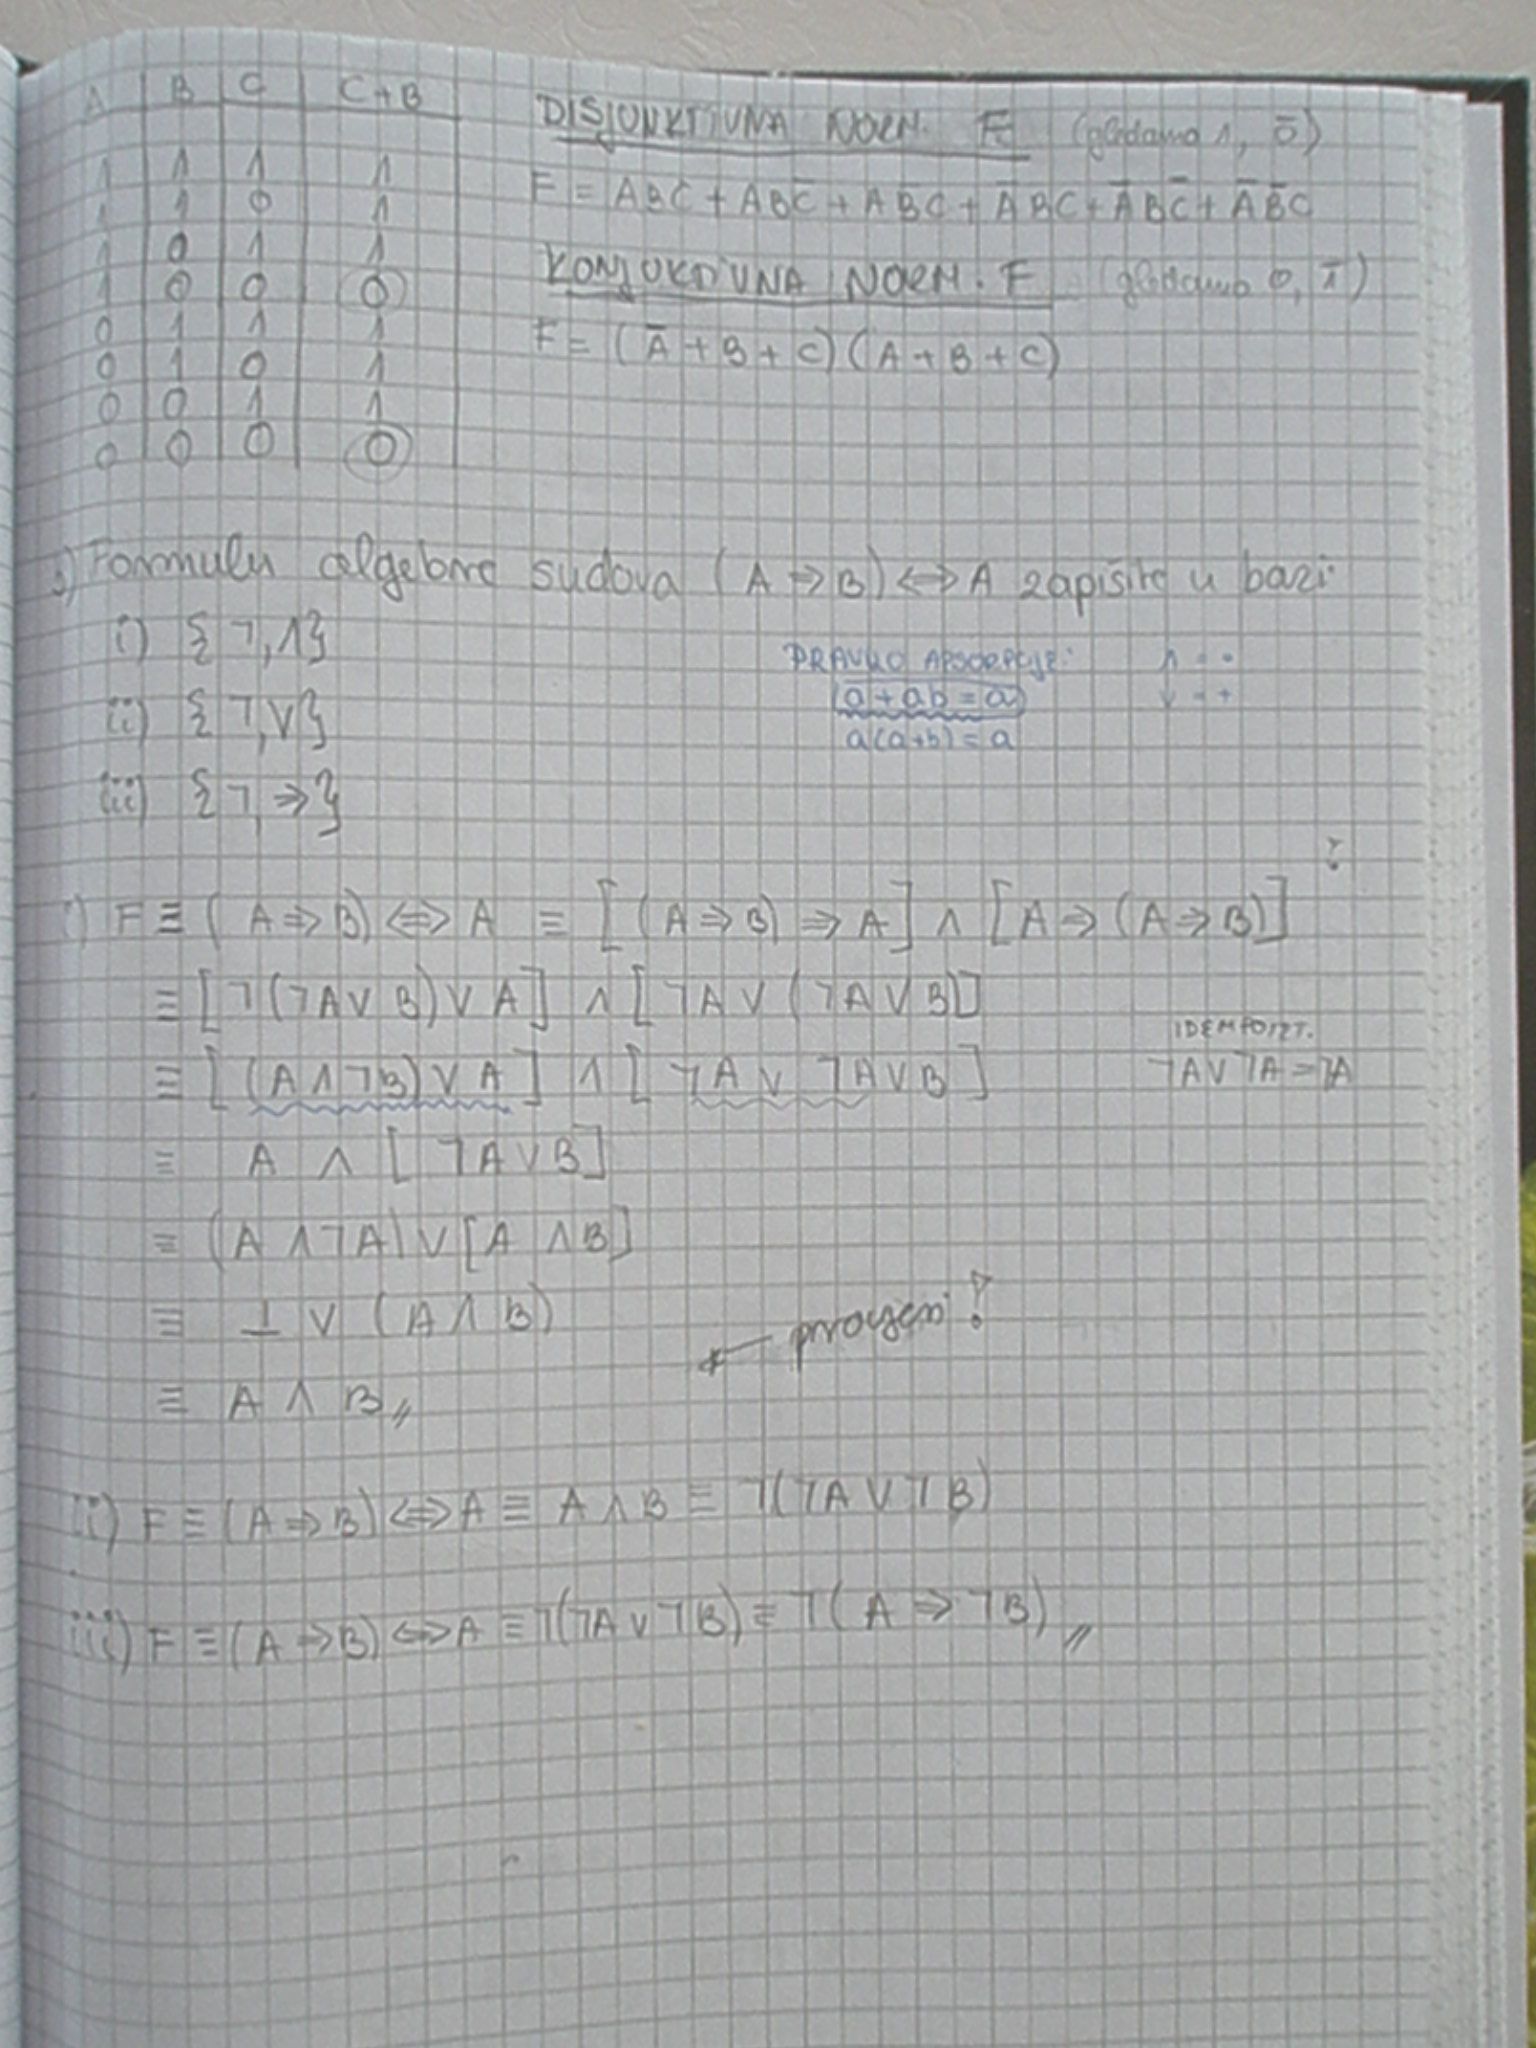 A B C C+B
1 1 1 1
1 1 0 1
1 0 1 1
1 0 0 0
0 1 1 1
0 1 0 1
0 0 1 1
0 0 0 0
DISJUNKTIVNA NORM. F (gledamo 1, 0̅)
F = ABC + ABC̅ + AB̅C + A̅BC + A̅BC̅ + A̅B̅C
KONJUKTIVNA NORM. F (gledamo 0, 1̅)
F = (A̅ + B + C)(A + B + C)
Formulu algebre sudova (A ⇒ B) ⇔ A zapišite u bazi
i) {¬, ∧}
ii) {¬, ∨}
iii) {¬, ⇒}
PRAVILO APSORPCIJE:
a + ab = a
a(a+b) = a
∧ = •
∨ = +
i) F ≡ (A ⇒ B) ⇔ A ≡ [(A ⇒ B) ⇒ A] ∧ [A ⇒ (A ⇒ B)]
≡ [¬(¬A ∨ B) ∨ A] ∧ [¬A ∨ (¬A ∨ B)]
≡ [(A ∧ ¬B) ∨ A] ∧ [¬A ∨ ¬A ∨ B]
IDEMPOTZT.
¬A ∨ ¬A = ¬A
≡ A ∧ [¬A ∨ B]
≡ (A ∧ ¬A) ∨ [A ∧ B]
≡ ⊥ ∨ (A ∧ B)
≡ A ∧ B //
ii) F ≡ (A ⇒ B) ⇔ A ≡ A ∧ B ≡ ¬(¬A ∨ ¬B)
iii) F ≡ (A ⇒ B) ⇔ A ≡ ¬(¬A ∨ ¬B) ≡ ¬(A ⇒ ¬B) //